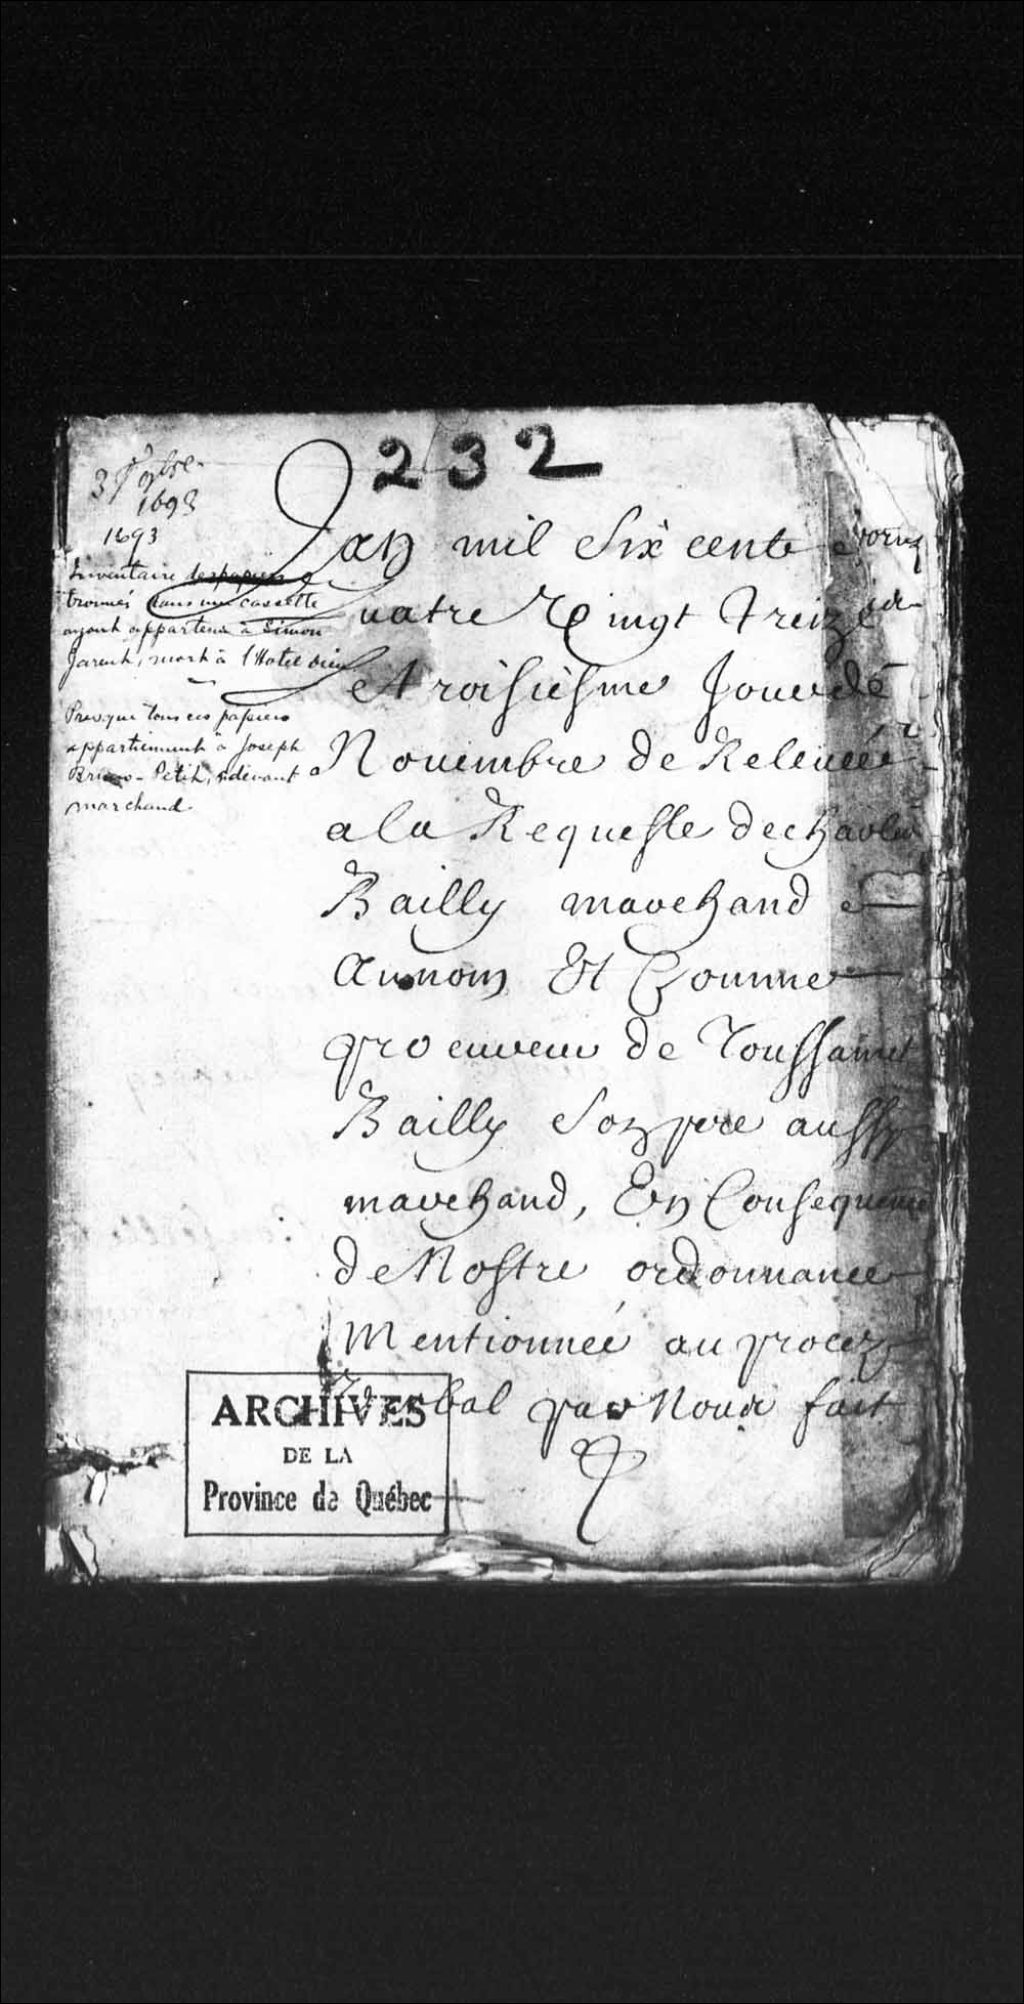 232
3 9bre
1693
1693
Inventaire des papiers
trouvés dans une cassette
ayant appartenu à Simon
Jarent, mort à l'Hotel dieu
Presque tous ces papiers
appartiennent à Joseph
Petit, cidevant
marchand.
Lan mil Six cente
quatre Vingt Treize
troisiesme Jour de
Nouembre de Releueé
a la Requeste de charles
Bailly marchand
Au nom Et Comme
procureur de Toussainct
Bailly Son pere aussy
marchand, En Consequence
de Nostre ordonnance
Mentionneé au procez
Verbal par Nous fait
ARCHIVES
DE LA
Province de Québec